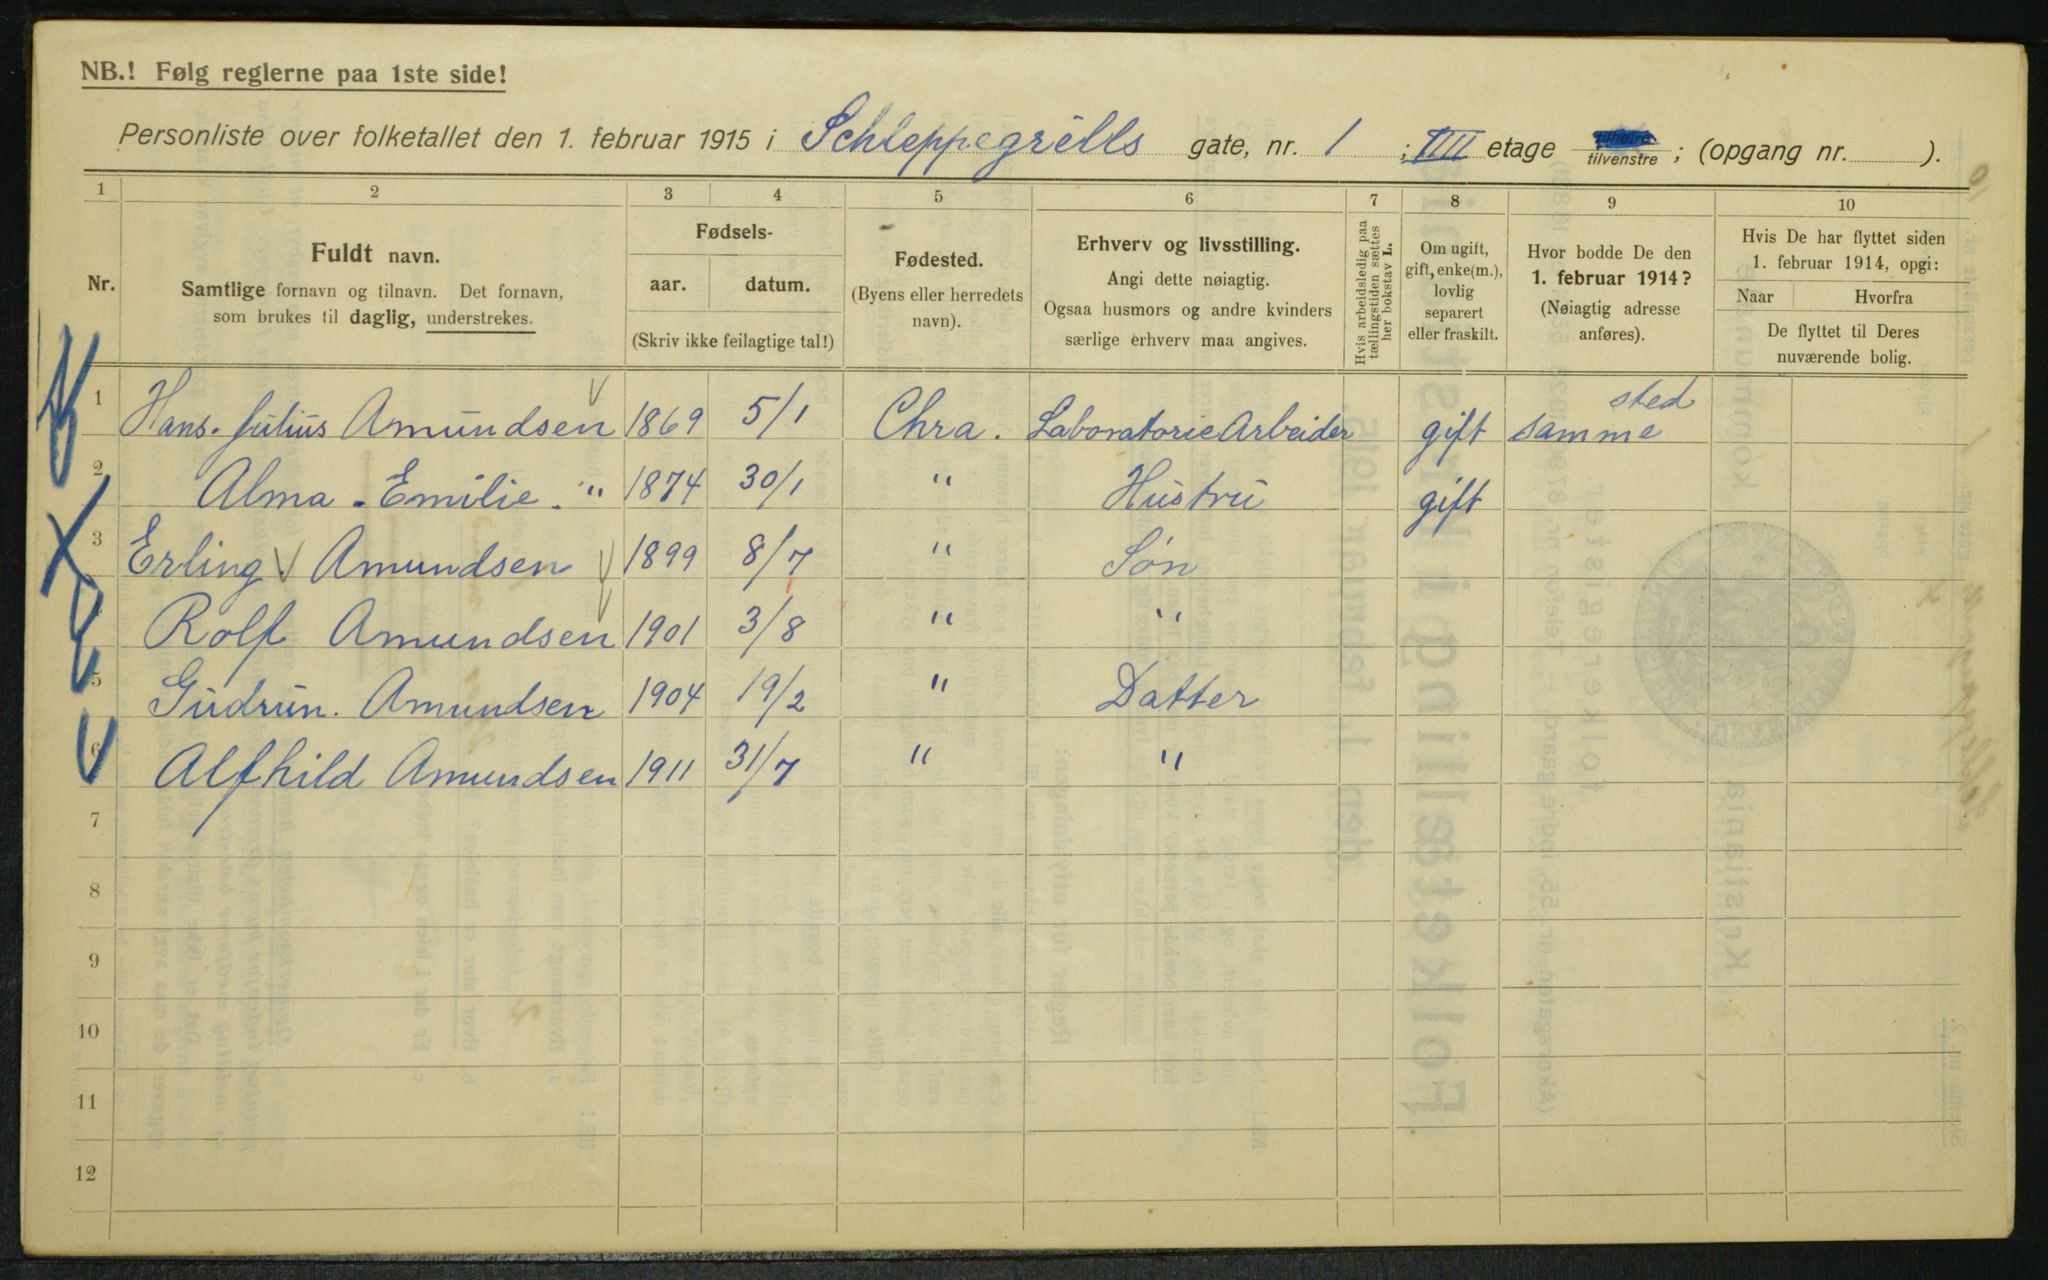 NB.! Følg reglerne paa 1ste side!
Personliste over folketallet den 1. februar 1915 i Schleppegrells gate, nr. 1 ; IIII etage tilvenstre ; (opgang nr. ).
1 2 3 4 5 6 7 8 9 10
Nr.
Fuldt navn.
Samtlige fornavn og tilnavn. Det fornavn,
som brukes til daglig, understrekes.
Fødsels-
aar. datum.
(Skriv ikke feilagtige tal!)
Fødested.
(Byens eller herredets
navn).
Erhverv og livsstilling.
Angi dette nøiagtig.
Ogsaa husmors og andre kvinders
særlige erhverv maa angives.
Hvis arbeidsledig paa
tællingstiden sættes
her bokstav L.
Om ugift,
gift, enke(m.),
lovlig
separert
eller fraskilt.
Hvor bodde De den
1. februar 1914?
(Nøiagtig adresse
anføres).
Hvis De har flyttet siden
1. februar 1914, opgi:
Naar Hvorfra
De flyttet til Deres
nuværende bolig.
1 Hans. Julius Amundsen 1869 5/1 Chra. Laboratorie Arbeider gift samme sted
2 Alma. Emilie. " 1874 30/1 " Hustru gift
3 Erling Amundsen 1899 8/7 " Søn
4 Rolf Amundsen 1901 3/8 " "
5 Gudrun. Amundsen 1904 19/2 " Datter
6 Alfhild Amundsen 1911 31/7 " "
7
8
9
10
11
12